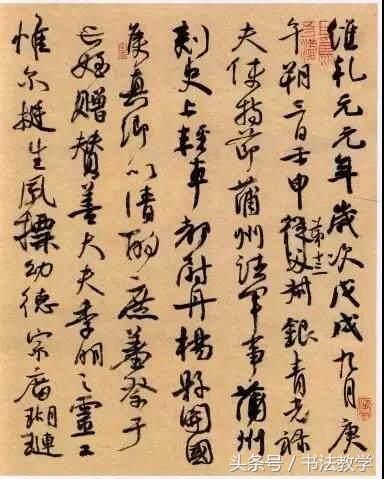 維乾元元年歲次戊戌九月庚
午朔三日壬申第十三從父叔銀青光祿
夫使持節蒲州諸軍事蒲州
刺史上輕車都尉丹楊縣開國
侯真卿以清酌庶羞祭于
亡姪贈贊善大夫季明之靈曰
惟尔挺生夙標幼德宗廟瑚璉
头条号 / 书法教学